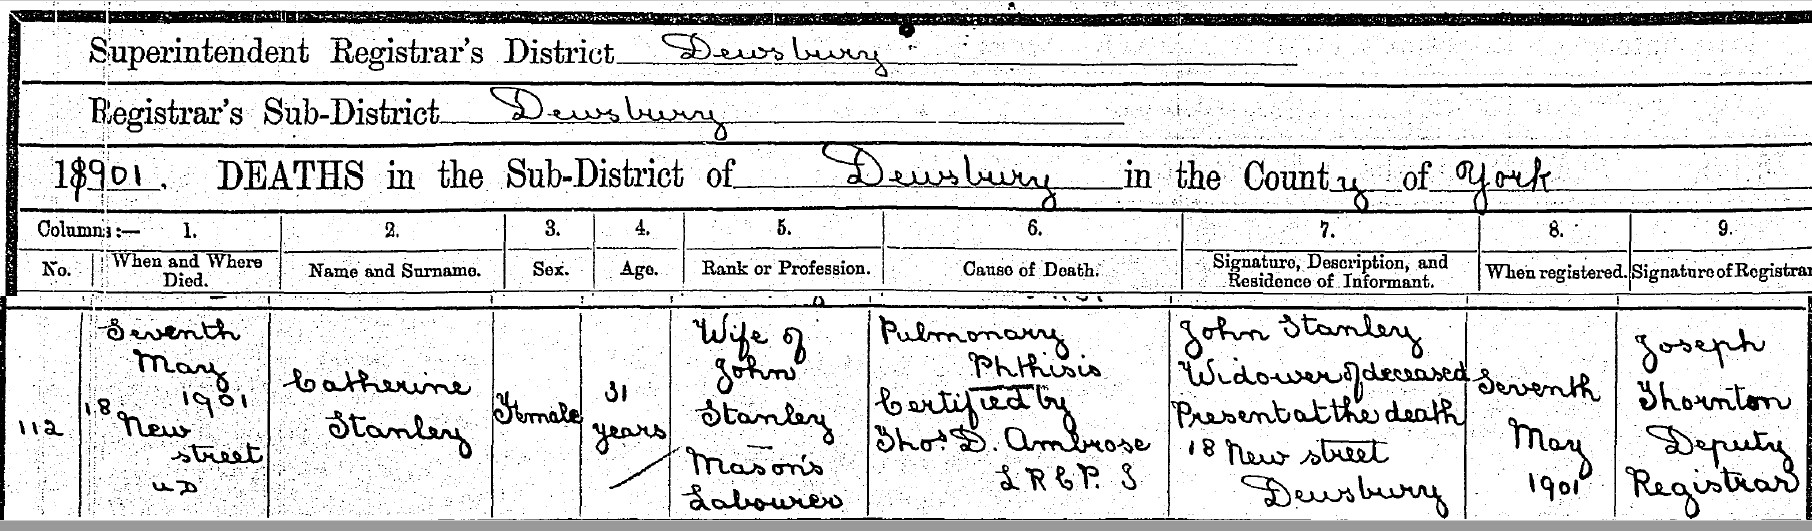 Superintendent Registrar's District Dewsbury
Registrar's Sub-District Dewsbury
1901. DEATHS in the Sub-District of Dewsbury in the County of York
Columns:— 1. 2. 3. 4. 5. 6. 7. 8. 9.
No. When and Where Died. Name and Surname. Sex. Age. Rank or Profession. Cause of Death. Signature, Description, and Residence of Informant. When registered. Signature of Registrar
112
Seventh
May
1901
18 New
street
U D
Catherine
Stanley
Female
31
years
Wife of
John
Stanley
Mason's
Labourer
Pulmonary
Phthisis
Certified by
Thos. D. Ambrose
L R C P. I
John Stanley
Widower of deceased
Present at the death
18 New street
Dewsbury
Seventh
May
1901
Joseph
Thornton
Deputy
Registrar